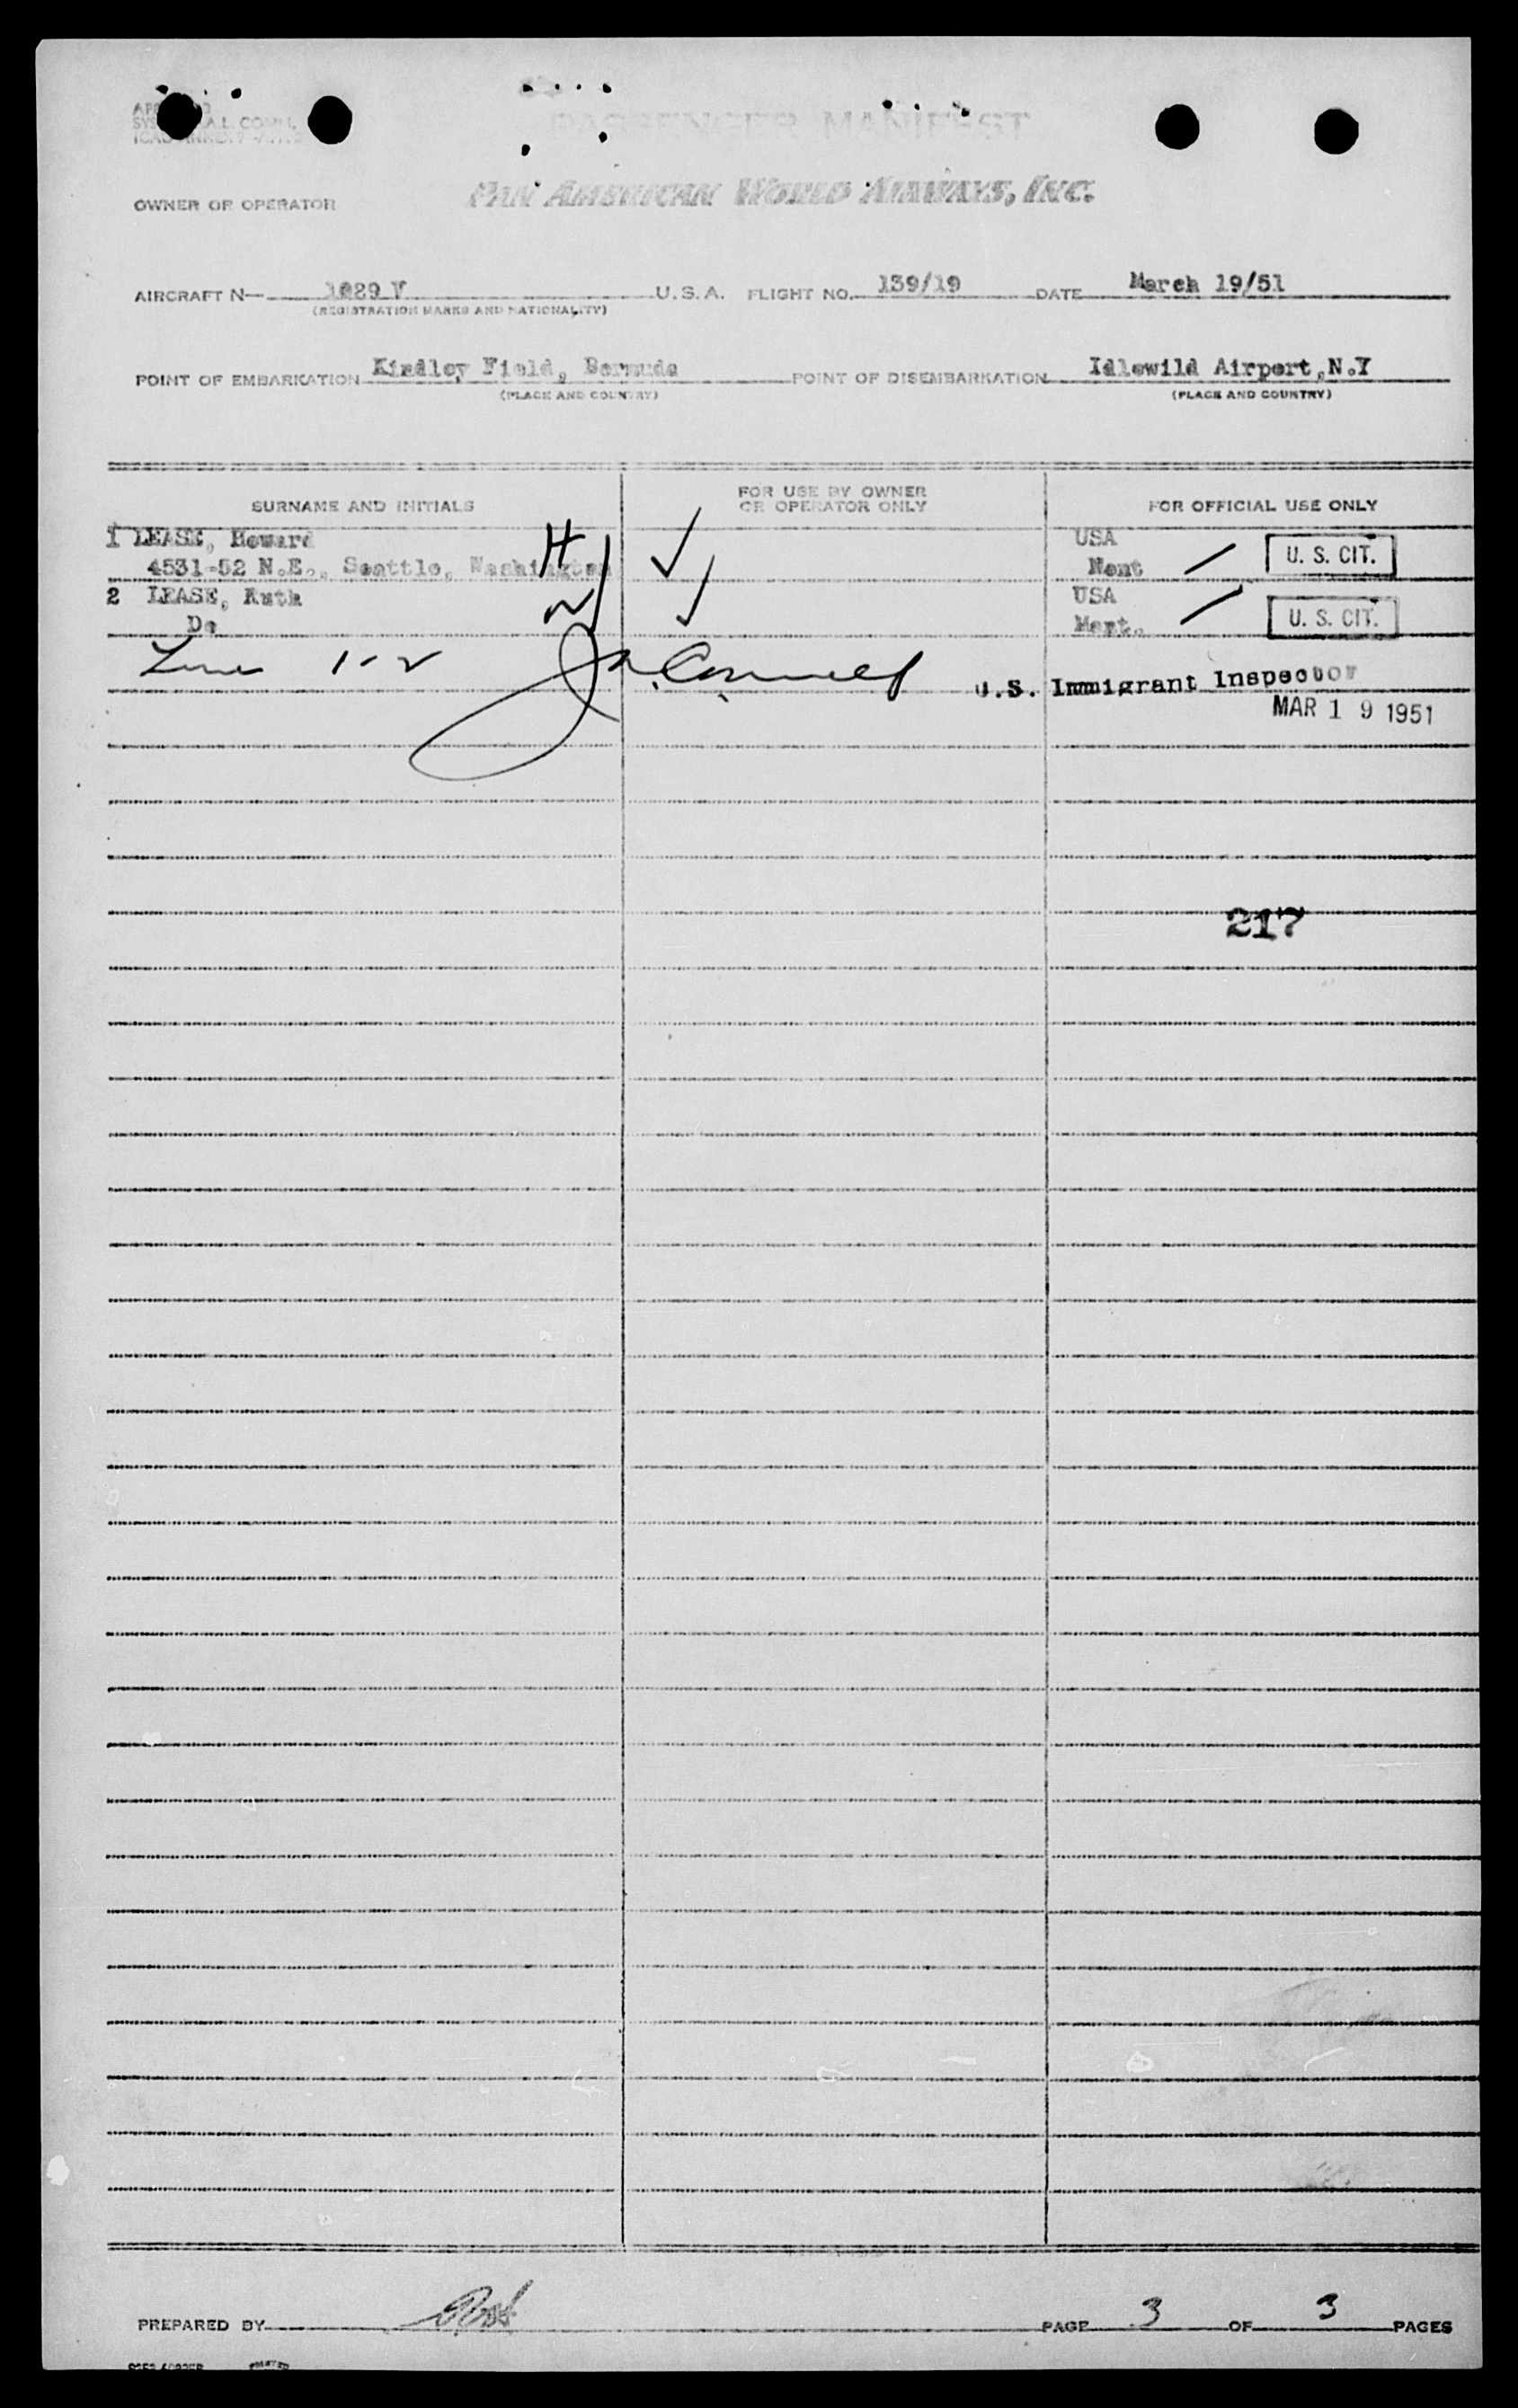 PASSENGER MANIFEST
OWNER OR OPERATOR PAN AMERICAN WORLD AIRWAYS, INC.
AIRCRAFT N— 1029 V U.S.A. FLIGHT NO. 139/19 DATE March 19/51
(REGISTRATION MARKS AND NATIONALITY)
POINT OF EMBARKATION Kindley Field, Bermuda POINT OF DISEMBARKATION Idlewild Airport, N.Y
(PLACE AND COUNTRY) (PLACE AND COUNTRY)
SURNAME AND INITIALS FOR USE BY OWNER OR OPERATOR ONLY FOR OFFICIAL USE ONLY
1 LEASE, Howard H USA
4531-52 N.E., Seattle, Washington Mont U. S. CIT.
2 LEASE, Ruth W USA
Do Mont. U. S. CIT.
Line 1-2 U.S. Immigrant Inspector
MAR 19 1951
217
PREPARED BY PAGE 3 OF 3 PAGES